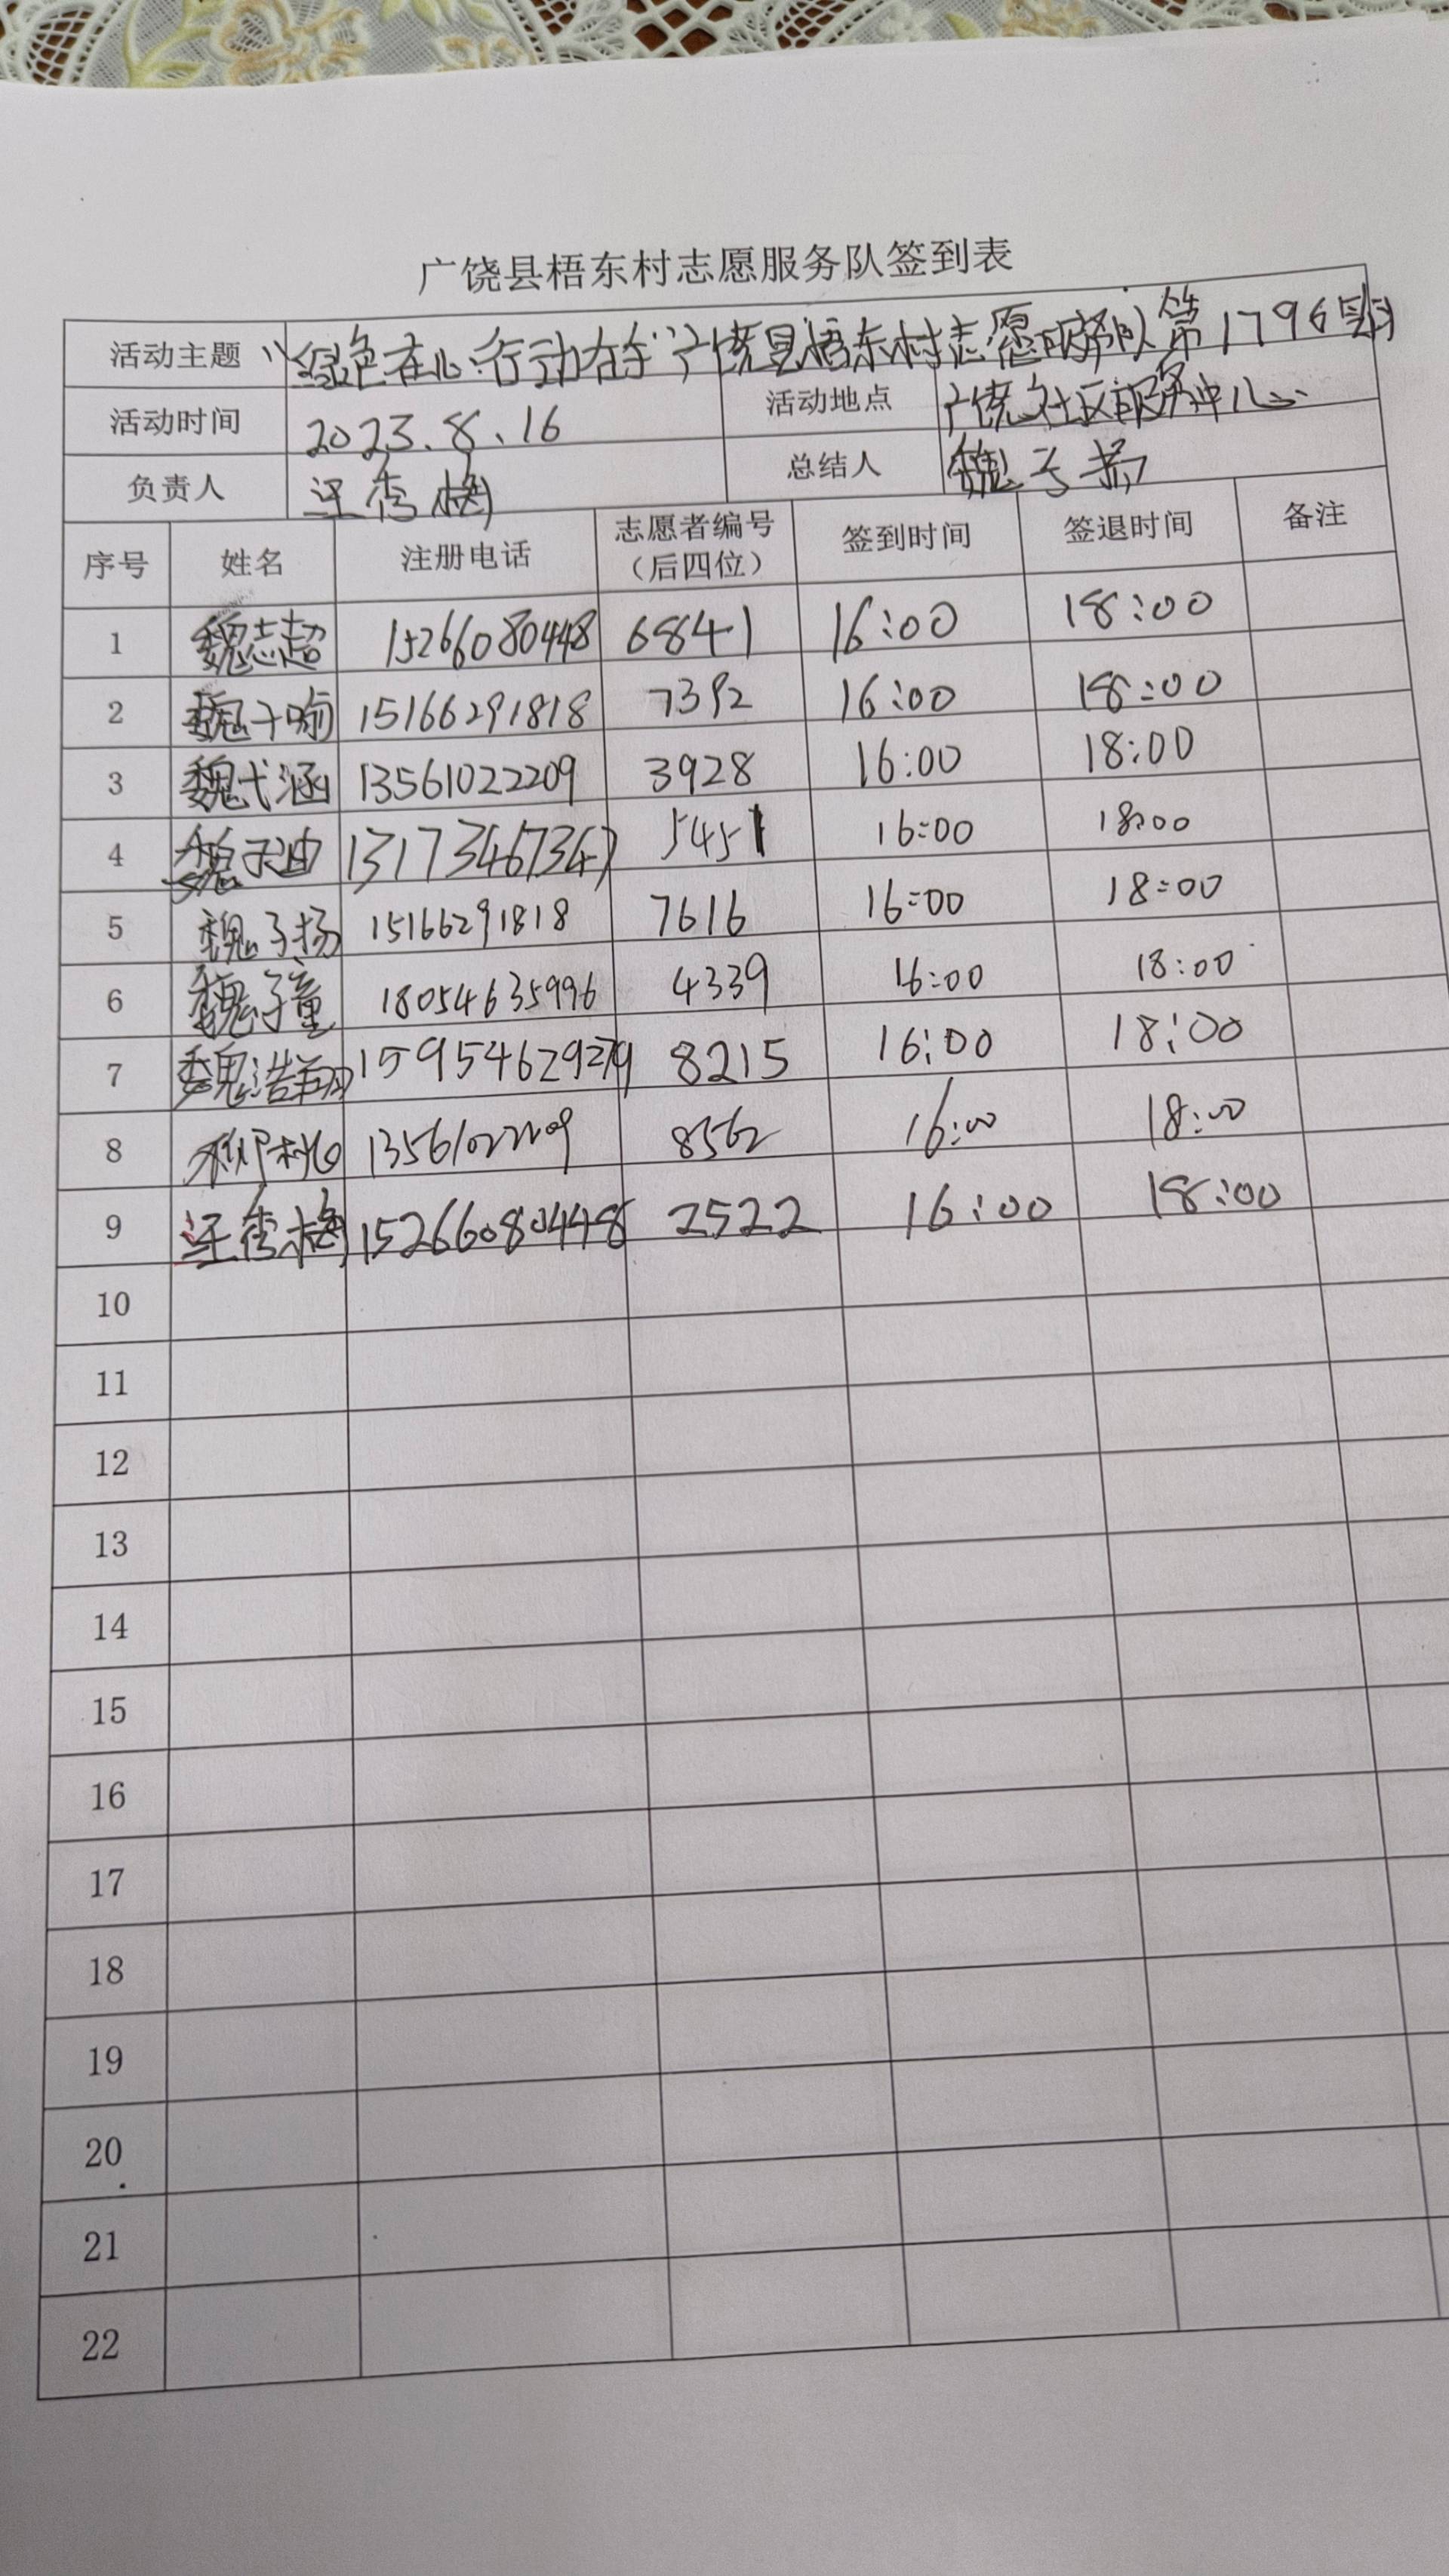 广饶县梧东村志愿服务队签到表
活动主题 "绿色在心·行动在手"广饶县梧东村志愿服务队第1796期
活动时间 2023.8.16 活动地点 广饶社区服务中心
负责人 汪秀梅 总结人 魏子扬
序号 姓名 注册电话 志愿者编号（后四位） 签到时间 签退时间 备注
1 魏志超 15266080448 6841 16:00 18:00
2 魏子喻 15166291818 7392 16:00 18:00
3 魏弋涵 13561022209 3928 16:00 18:00
4 魏子迪 13173467347 5451 16:00 18:00
5 魏子扬 15166291818 7616 16:00 18:00
6 魏子童 18054635996 4339 16:00 18:00
7 魏浩翔 8215 16:00 18:00
8 13561022209 8562 16:00 18:00
9 汪秀梅 15266080448 2522 16:00 18:00
10
11
12
13
14
15
16
17
18
19
20
21
22